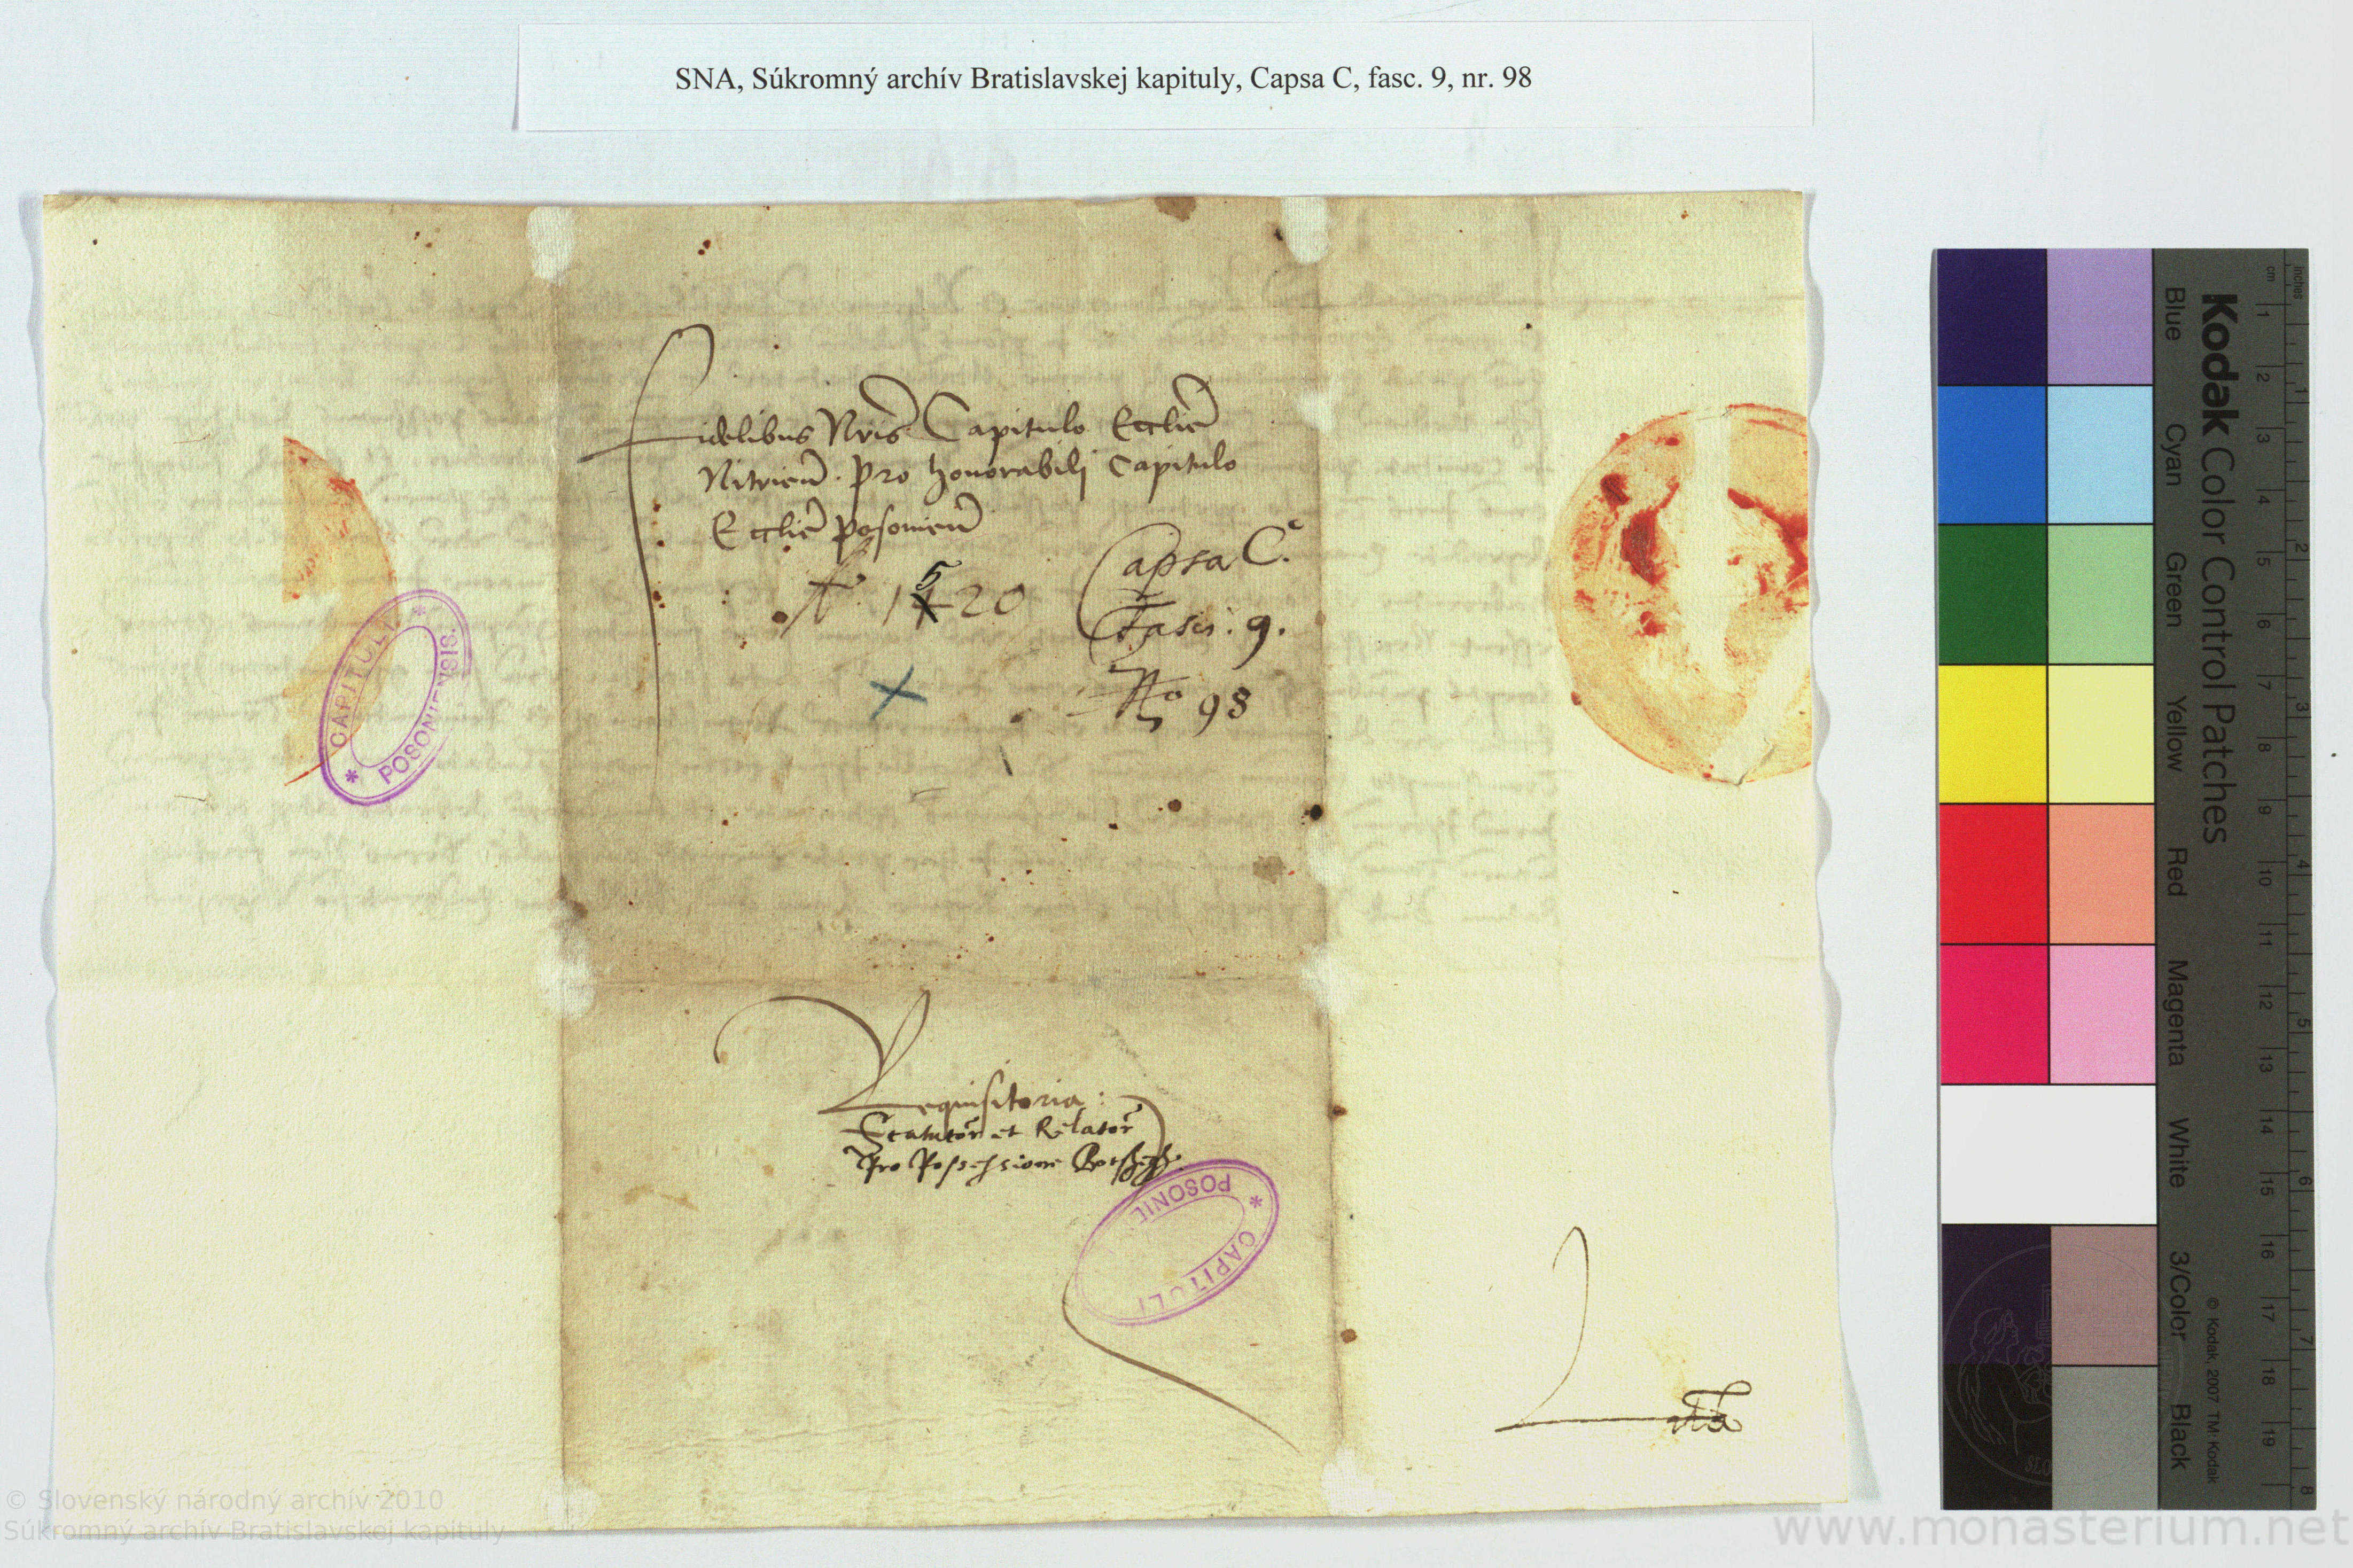 SNA, Súkromný archív Bratislavskej kapituly, Capsa C, fasc. 9, nr. 98
Fidelibus Nris Capitulo Ecclie
Nitrien. pro honorabilj Capitulo
Ecclie posonien
Aº 1520
Capsa C.
Fasci: 9.
Nº 98
CAPITULI * POSONIENSIS. *
Requisitoria:
Statutor et Relator
Pro Possessione
CAPITULI * POSONIE
Lecta
Kodak Color Control Patches
Blue Cyan Green Yellow Red Magenta White 3/Color Black
© Kodak, 2007 TM: Kodak
cm 1 2 3 4 5 6 7 8 9 10 11 12 13 14 15 16 17 18 19
inches 1 2 3 4 5 6 7 8
© Slovenský národný archív 2010
Súkromný archív Bratislavskej kapituly
www.monasterium.net